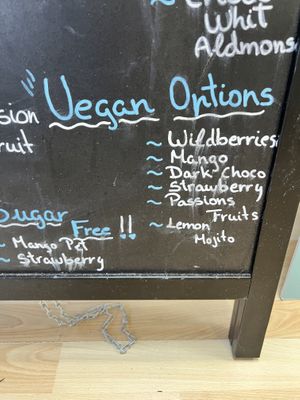 Whit
Aldmons
Vegan Options
ssion
ruit
~ Wildberries
~ Mango
~ Dark Choco
~ Strawberry
~ Passions
Fruits
~ Lemon
Mojito
Sugar Free !!
~ Mango
~ Strawberry